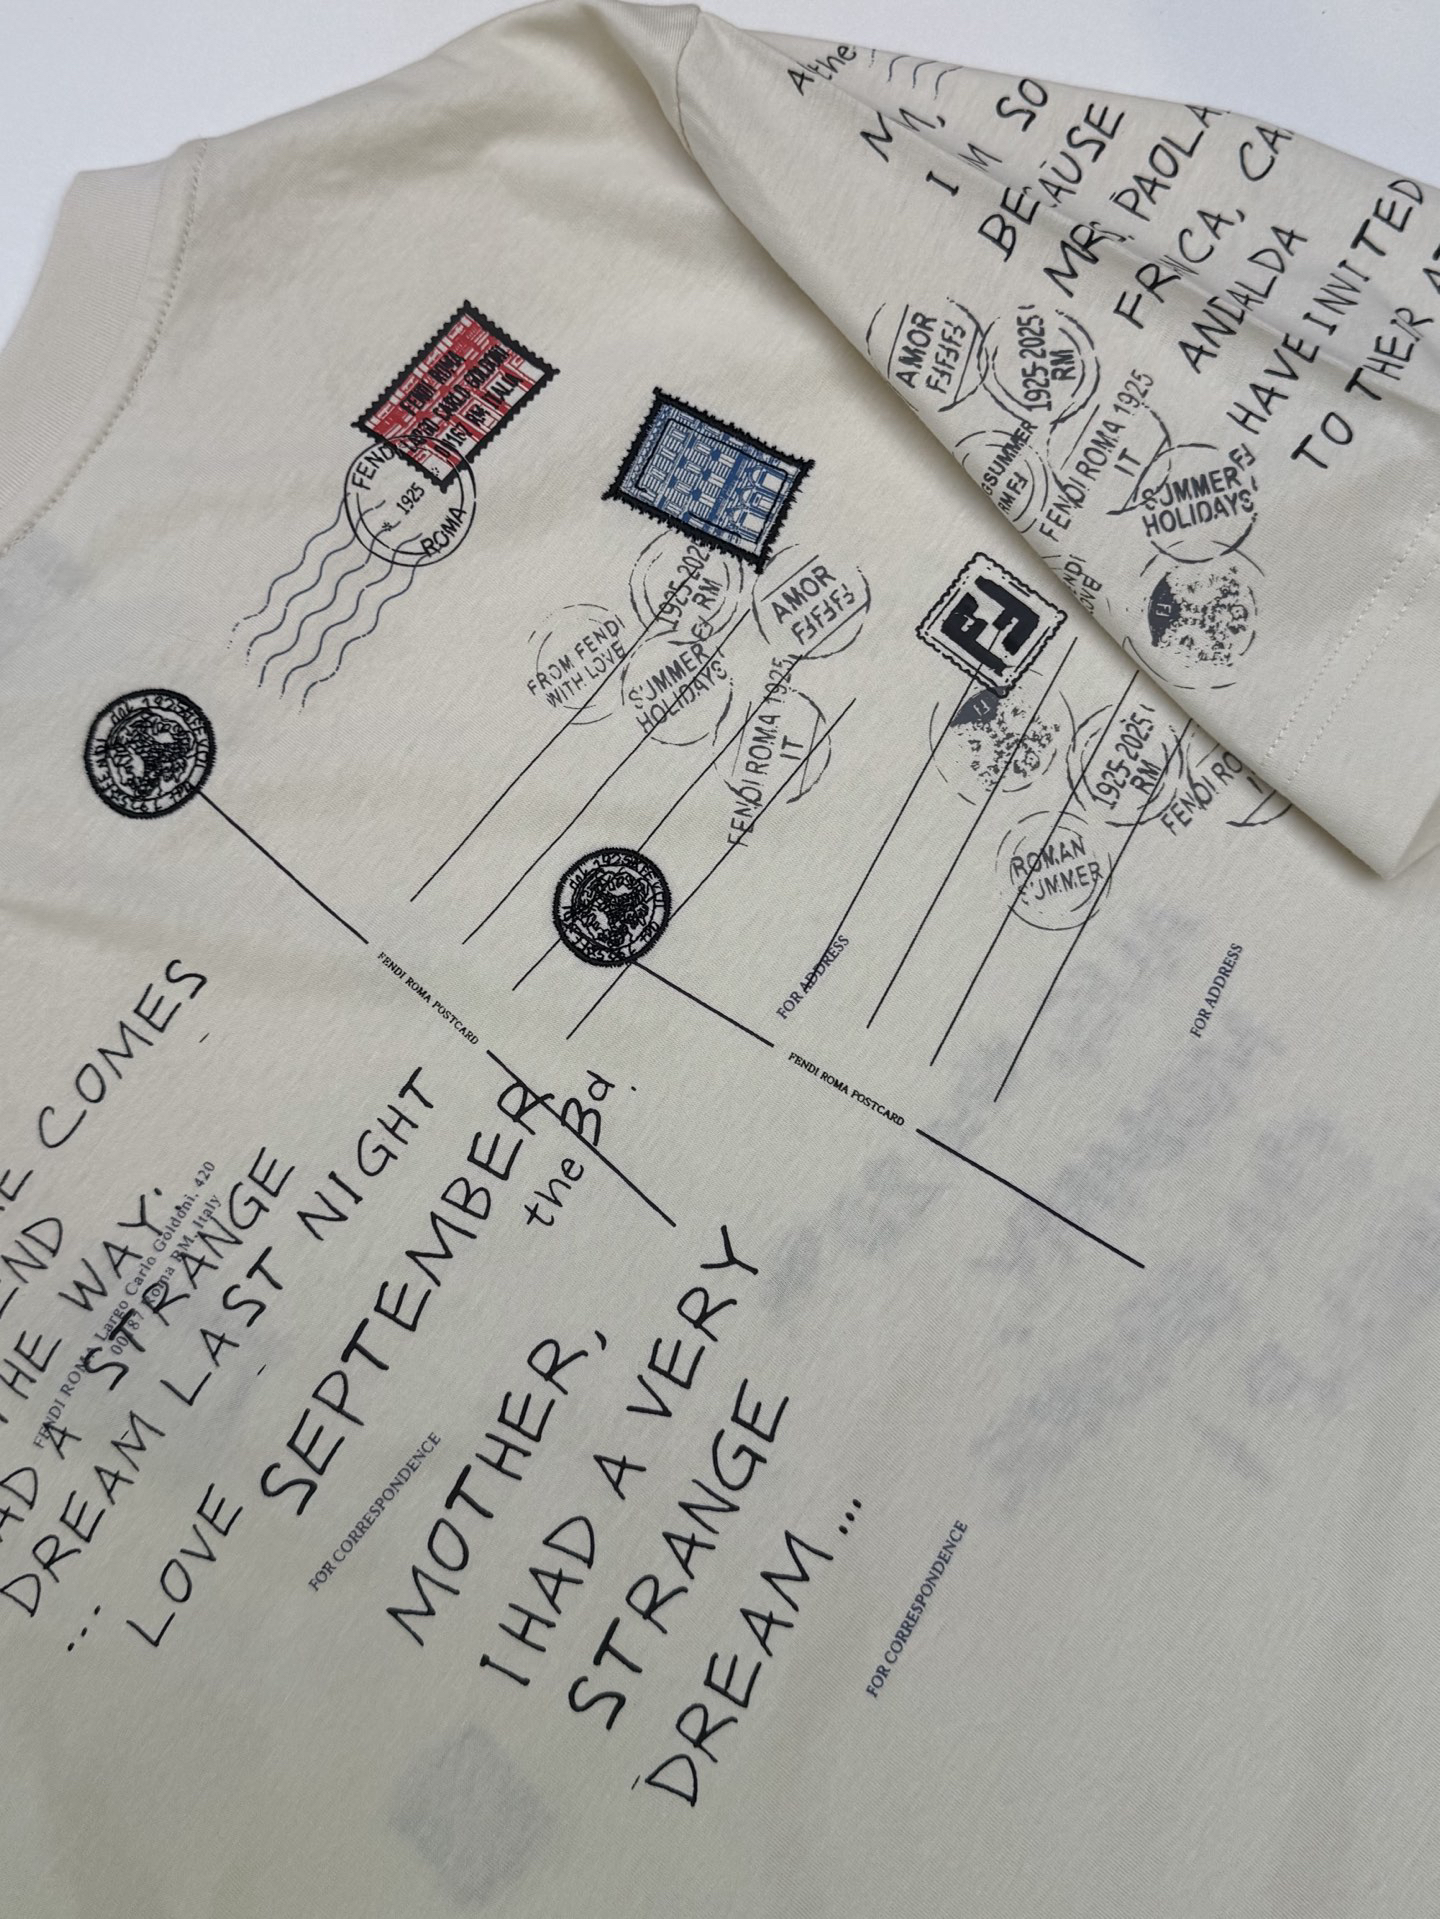 the
I M SO
BECAUSE
MRS PAOLA
ANIALDA
HAVE INVITED
TO THEIR
FENDI ROMA
LARGO CARLO GOLDONI
FENDI
1925
ROMA
AMOR
1925-2025
RM
SUMMER
RM
FENDI ROMA 1925
IT
SUMMER
HOLIDAYS
FROM FENDI
WITH LOVE
1925-2025
RM
SUMMER
HOLIDAYS
AMOR
FENDI ROMA 1925
IT
1925-2025
RM
ROMAN
SUMMER
FENDI ROMA POSTCARD
FOR ADDRESS
FENDI ROMA POSTCARD
FOR ADDRESS
COMES
THE WAY.
HAD A STRANGE
DREAM LAST NIGHT
...
LOVE SEPTEMBER
the Bd.
FENDI ROMA Largo Carlo Goldoni. 420
00187 Roma RM, Italy
FOR CORRESPONDENCE
MOTHER,
I HAD A VERY
STRANGE
DREAM...
FOR CORRESPONDENCE